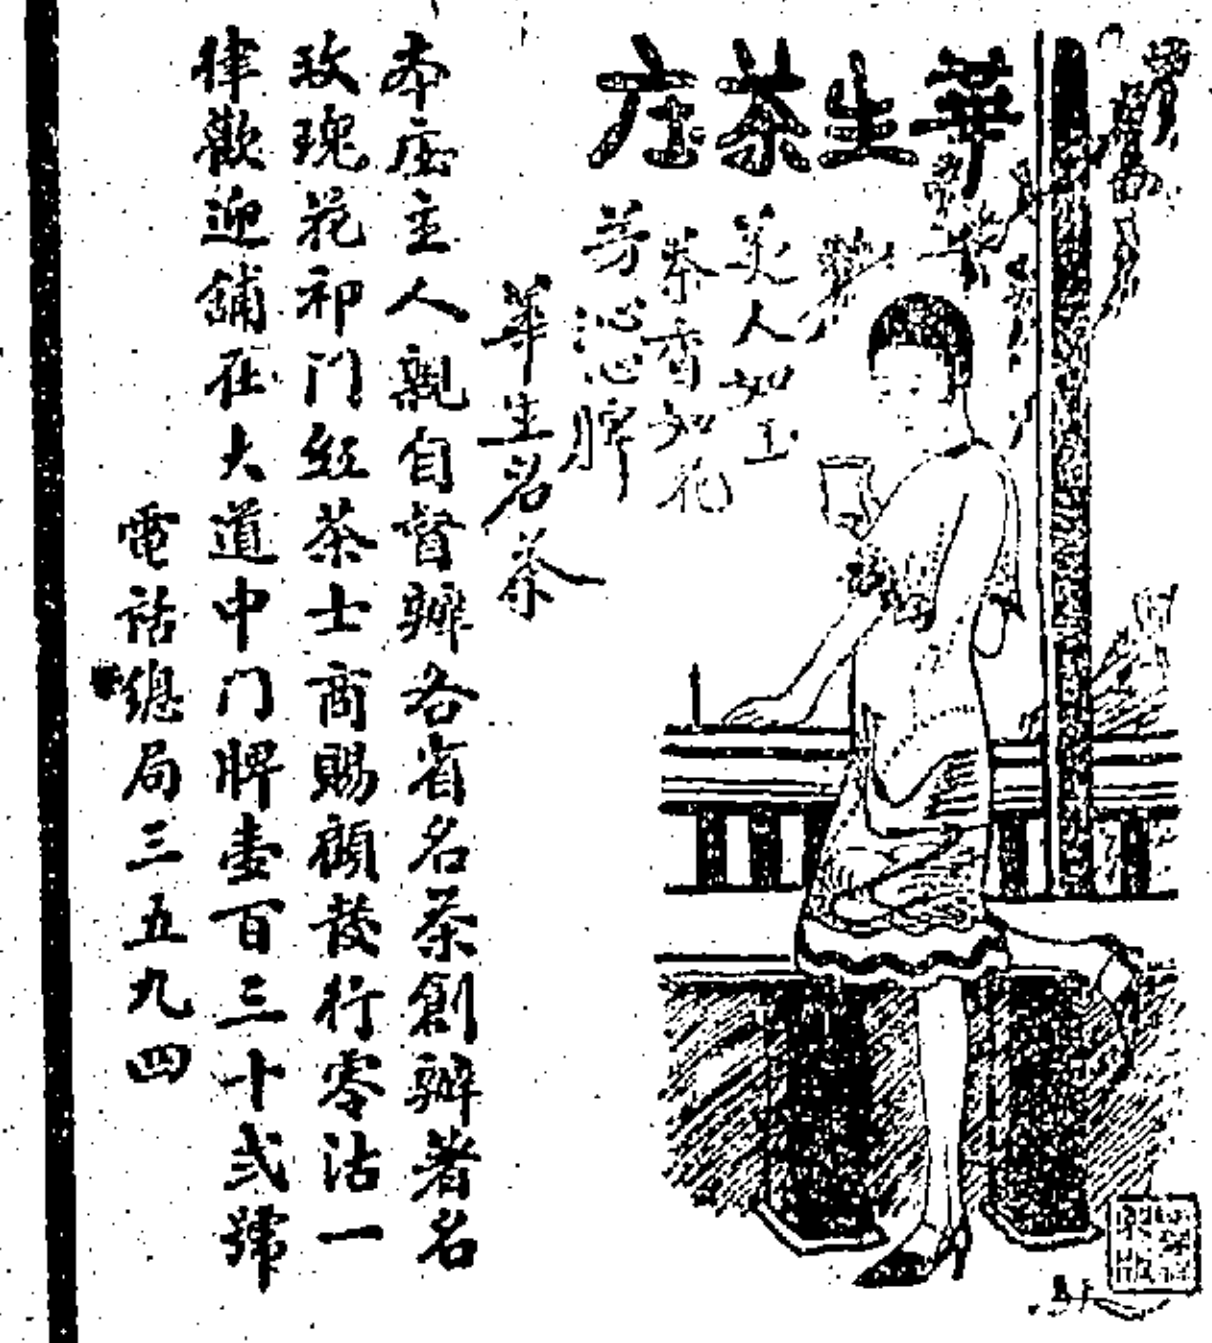 華生茶庄
美人如玉
茶香如花
芳沁心脾
華生名茶
本庄主人親自督辦各省名茶創辦著名
玫瑰花祁门紅茶士商賜顧發行零沽一
律歡迎鋪在大道中门牌壹百三十弍號
電話總局三五九四